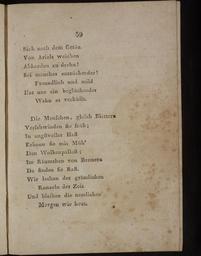 59
Sich nach dem Getön
Von Ariels weichen
Akkorden zu
Sei mancher entzückender!
Freundlich und mild
Hat uns ein beglückender
Wahn es verhüllt.
Die Menschen, gleich Blättern
Verschwinden sie früh;
In angstvoller Hast
Erbauen sie mit Müh'
Den Wolkenpallast;
Im Räumchen von Brettern
Da finden sie Rast.
Wir lachen der grämlichen
Runzeln der Zeit
Und bleiben die nemlichen
Morgen wie heut.